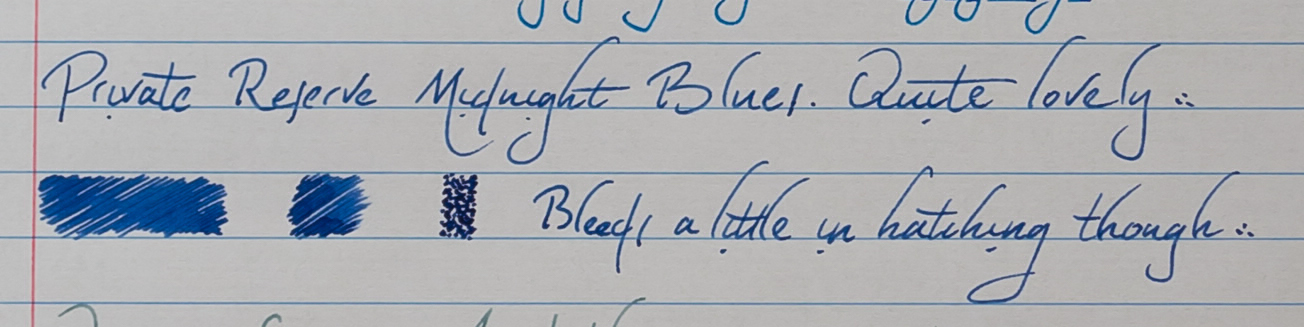 Private Reserve Midnight Blues. Quite lovely..
Bleeds a little in hatching though..